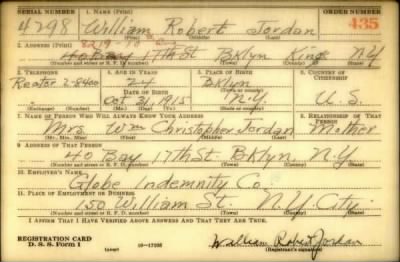 SERIAL NUMBER 1. NAME (Print) ORDER NUMBER
4298 William Robert Jordan 435
2. ADDRESS (Print)
40 Bay 17th St Bklyn Kings N.Y
(Number and street or R. F. D. number) (Town) (County) (State)
3. TELEPHONE 4. AGE IN YEARS 5. PLACE OF BIRTH 6. COUNTRY OF CITIZENSHIP
2-8400 24 Bklyn
DATE OF BIRTH
Oct 21, 1915 N.Y. U.S.
(Exchange) (Number) (Mo.) (Day) (Yr.) (State or country)
7. NAME OF PERSON WHO WILL ALWAYS KNOW YOUR ADDRESS 8. RELATIONSHIP OF THAT PERSON
Mrs Wm Christopher Jordan Mother
(Mr., Mrs., Miss) (First) (Middle) (Last)
9. ADDRESS OF THAT PERSON
40 Bay 17th St. Bklyn N.Y
(Number and street or R. F. D. number) (Town) (County) (State)
10. EMPLOYER'S NAME
Globe Indemnity Co.
11. PLACE OF EMPLOYMENT OR BUSINESS
150 William St. N.Y. City.
(Number and street or R. F. D. number) (Town) (County) (State)
I AFFIRM THAT I HAVE VERIFIED ABOVE ANSWERS AND THAT THEY ARE TRUE.
REGISTRATION CARD
D. S. S. Form 1 (over) William Robert Jordan
(Registrant's signature)